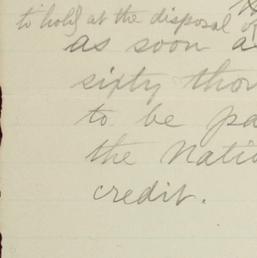 to hold at the disposal of
as soon a
sixty thou
to be pa
the Natio
credit.